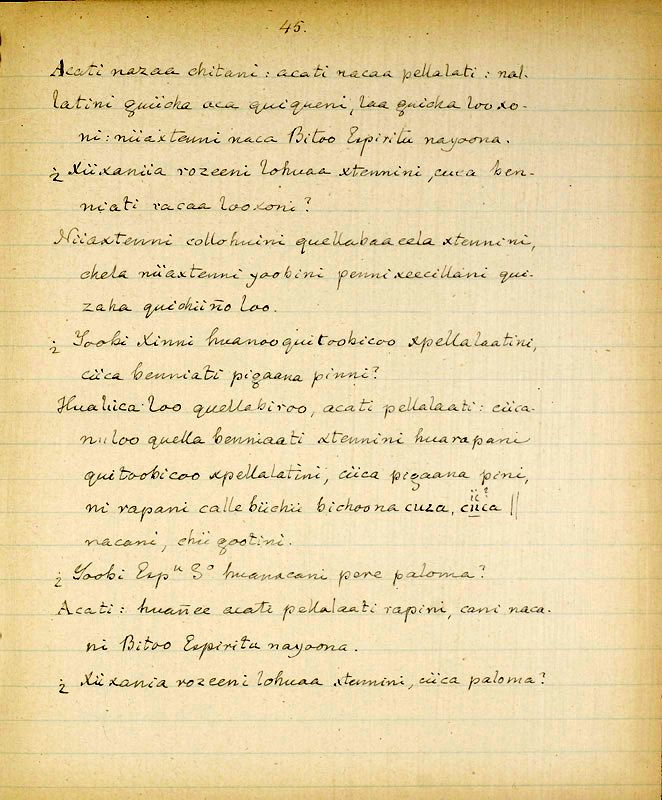 45.
Acati nazaa chitani: acati nacaa pellalati: nal-
latini guiicha aca quiqueni, laa guicha looxo-
ni: niiaxtenni naca Bitoo Espiritu nayoona.
¿ Xiixaniia rozeeni lohuaa xtennini, cuca ben-
niati racaa looxoni?
Niiaxtenni collohuini quellabaacela xtennini,
chela niiaxtenni yoobini pennixeecillani qui-
zaha quichiiño loo.
¿ Yoobi Xinni huanooquitoobicoo xpellalaatini,
ciica benniati pigaana pinni?
Hualiica loo quellabiroo, acati pellalaati: ciica-
niiloo quella benniaati xtennini huarapani
quitoobicoo xpellalatini, ciica pigaana pini,
ni rapani calle biichii bichoona cuza, ciica ||
ii?
nacani, chii gootini.
¿ Yoobi Espu So huanacani pere paloma?
Acati: huañee acati pellalaati rapini, cani naca-
ni Bitoo Espiritu nayoona.
¿ Xiixania rozeeni lohuaa xtennini, ciica paloma?